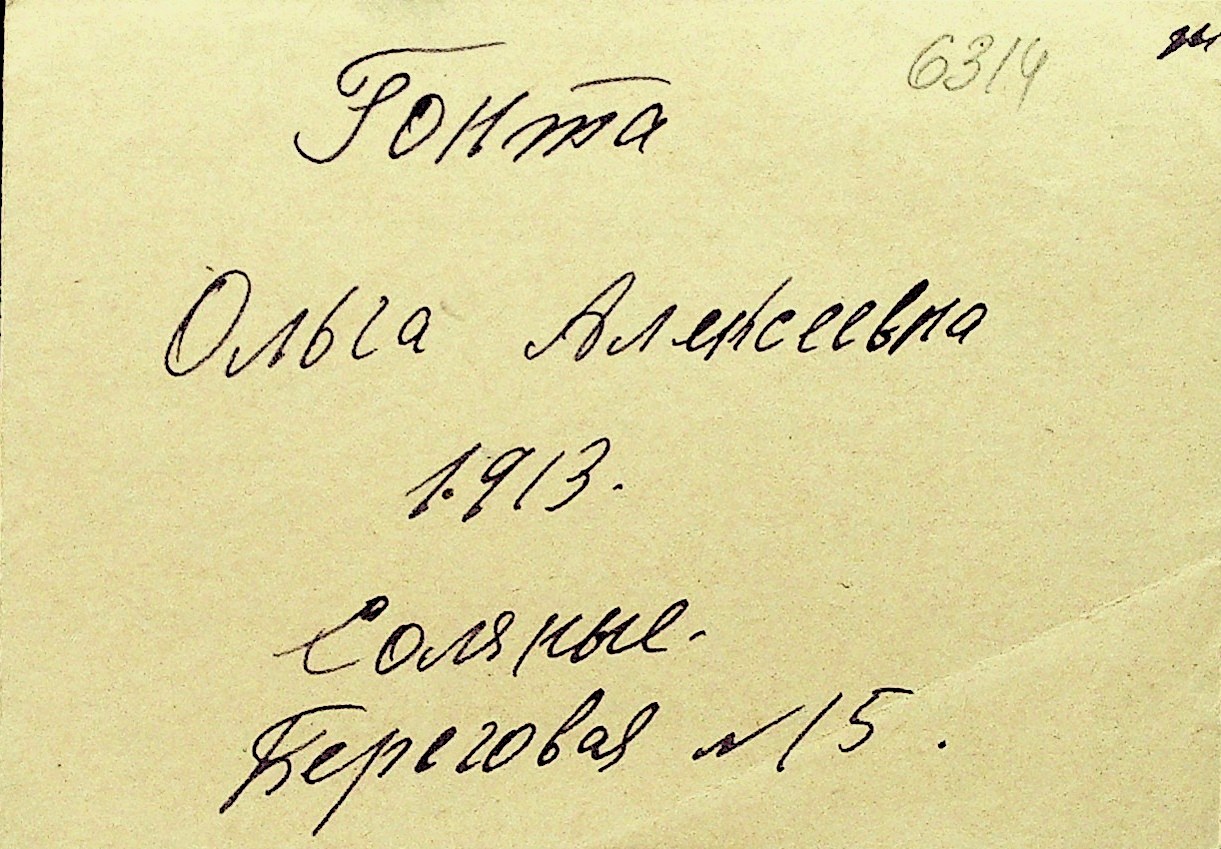 6314
Гонта
Ольга Алексеевна
1.913.
Соляные.
Береговая №15.